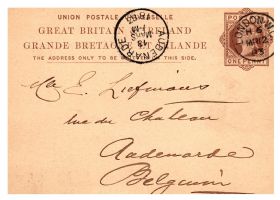 UNION POSTALE UNIVERSELLE
GREAT BRITAIN IRELAND
GRANDE BRETAGNE IRLANDE
THE ADDRESS ONLY TO BE WRITTEN ON THIS SIDE.
ONE PENNY
AUDENARDE
LONDON
E. Liefmans
rue du Chateau
Audenarde
Belgium